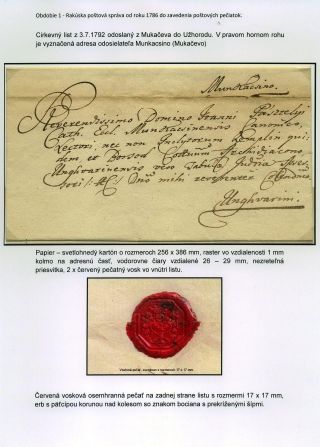 Obdobie 1 - Rakúska poštová správa od roku 1786 do zavedenia poštových pečiatok.
Cirkevný list z 3.7.1792 odoslaný z Mukačeva do Užhorodu. V pravom hornom rohu
je vyznačená adresa odosielateľa Munkacsino (Mukačevo)
Munkacsino
Reverendissimo Domino Joanni Pásztelyi
Cath. Eccl. Munkacsinensis Canonico,
Rectori, nec non Inclytorum
et Borsod Cottuum Archidiacono
Unghvariensis vero Tabulae
mihi
Unghvarini
Papier – svetlohnedý kartón o rozmeroch 256 x 386 mm, raster vo vzdialenosti 1 mm
kolmo na adresnú časť, vodorovne čiary vzdialené 26 – 29 mm, nezreteľná
priesvitka, 2 x červený pečatný vosk vo vnútri listu.
17 x 17 mm
Červená vosková osemhranná pečať na zadnej strane listu s rozmermi 17 x 17 mm,
erb s päťcípou korunou nad kolesom so znakom bociana s prekríženými šípmi.